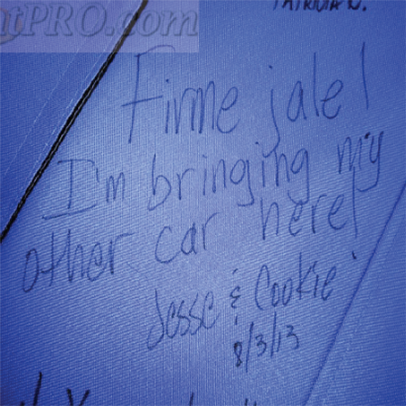 tPRO.com
PATRICIA W.
Firme jale!
I'm bringing my
other car here!
Jesse & Cookie
8/3/13